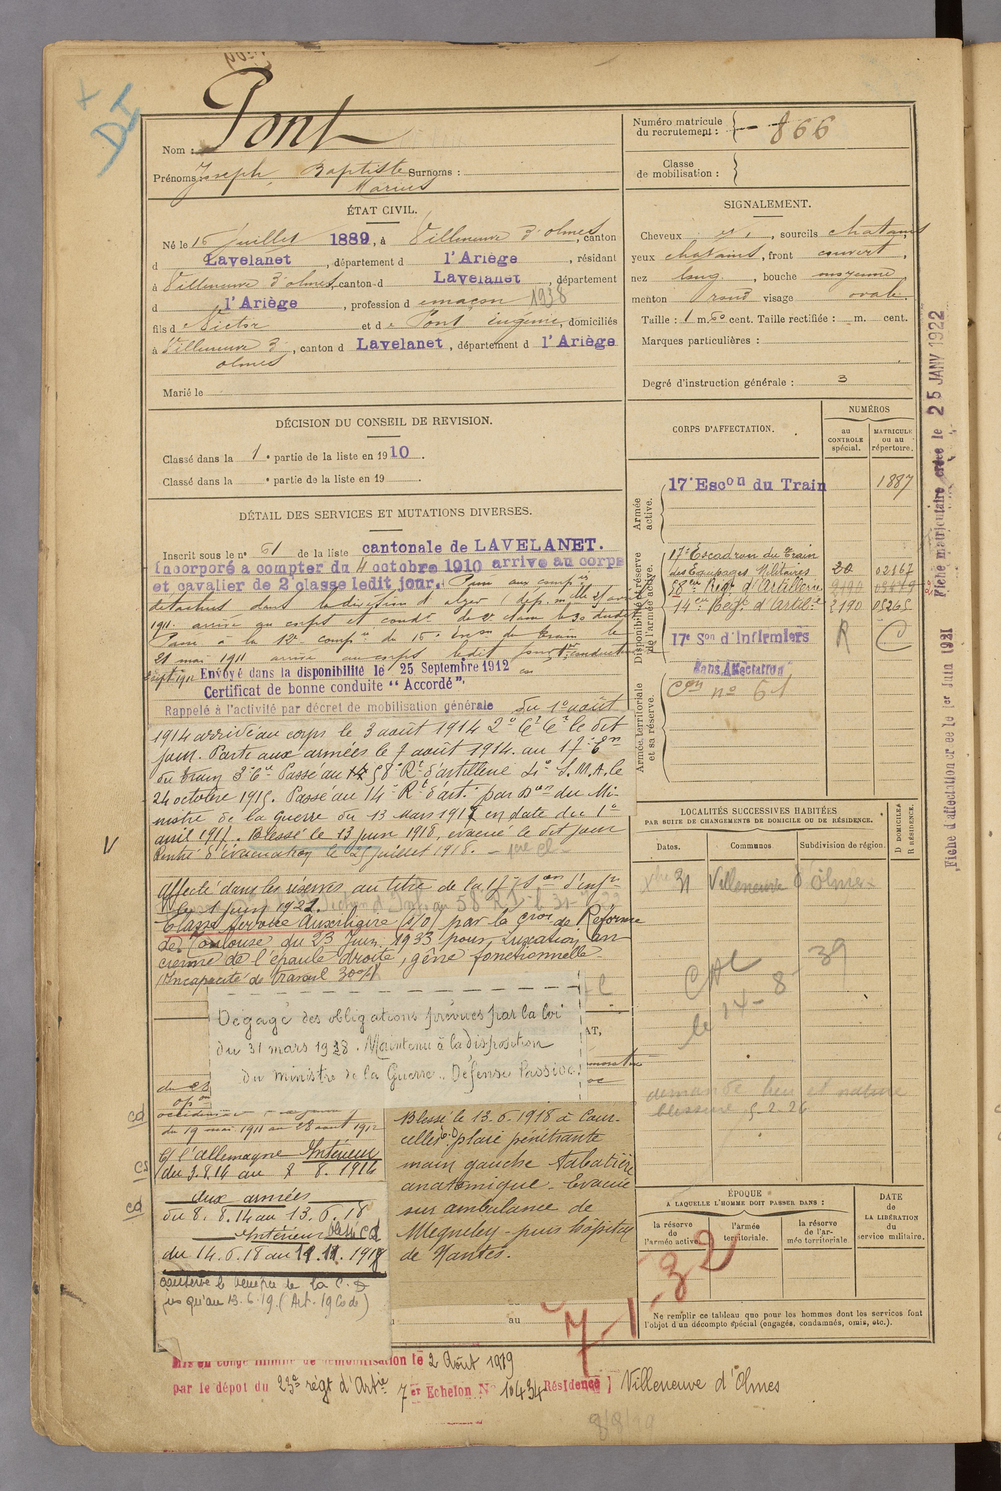 Pont
Nom :
Prénoms : Joseph, Baptiste Surnoms :
Marius
Numéro matricule
du recrutement : 866
Classe
de mobilisation :
ÉTAT CIVIL.
Né le 16 Juillet 1889, à Villeneuve d'olmes, canton
d Lavelanet, département d l'Ariège, résidant
à Villeneuve d'olmes, canton d Lavelanet, département
d l'Ariège, profession d maçon 1938
fils d Victor et d e Pont Eugénie, domiciliés
à Villeneuve d', canton d Lavelanet, département d l'Ariège
olmes
Marié le
SIGNALEMENT.
Cheveux , sourcils chatains
yeux chatains, front couvert,
nez long, bouche moyenne
menton rond visage ovale.
Taille : 1 m. 60 cent. Taille rectifiée : m. cent.
Marques particulières :
Degré d'instruction générale : 3
DÉCISION DU CONSEIL DE REVISION.
Classé dans la 1e partie de la liste en 1910.
Classé dans la e partie de la liste en 19 .
DÉTAIL DES SERVICES ET MUTATIONS DIVERSES.
Inscrit sous le n° 61 de la liste cantonale de LAVELANET.
Incorporé a compter du 4 octobre 1910 arrive au corps
et cavalier de 2e classe ledit jour. Passé aux comp ies
détachées dans la division d'alger
1911. arrivé au corps et cond r de 2e classe le 30 dudit
Passé à la 12e comp ie du 16e Esc on du Train le
21 mai 1911 arrivé au corps ledit jour 1er conducteur
Sept. 1911 Envoyé dans la disponibilité le 25 Septembre 1912
Certificat de bonne conduite "Accordé".
Rappelé à l'activité par décret de mobilisation générale du 1er août
1914 arrivé au corps le 3 août 1914 le dit
jour. Parti aux armées le 7 août 1914. au 17e En
du Train 3e Cie Passé au 58e Rt d'artillerie S.M.A. le
24 octobre 1915. Passé au 14e Rt d'art. par D on du Mi-
nistre de la Guerre du 13 Mars 1917 en date du 1er
avril 1917. Blessé le 13 juin 1918, évacué le dit jour
Rentré d'évacuation le 25 juillet 1918. - 1ère Cl -
Affecté dans les réserves, au titre de la 17e S on d'Inf ers
le 1 juin 1921.
Classé service Auxiliaire (s/o) par la C ion de Réforme
de Toulouse du 23 Juin 1933 pour, Luxation, an-
cienne de l'épaule droite, gêne fonctionnelle.
(Incapacité de travail 30%)
Dégagé des obligations prévues par la loi
du 31 mars 1928. Maintenu à la disposition
du ministre de la Guerre. Défense Passive.
du 19 mai 1911 au 28 août 1912
C/ l'allemagne Intérieur
du 3.8.14 au 7 8. 1914
Aux armées
du 8. 8.14 au 13. 6. 18
Intérieur
du 14.6.18 au 11.11. 1918
conserve le bénéfice de la C.D
jusqu'au 13.6.19. (Art. 19 Code)
Blessé le 13.6.1918 à Cour-
celles plaie pénétrante
main gauche tabatière
anatomique. Evacué
sur ambulance de
Megneley - puis hôpital
de Nantes.
CORPS D'AFFECTATION.
NUMÉROS
au
CONTROLE
spécial.
MATRICULE
ou au
répertoire.
Armée
active.
17e Escon du Train 1887
Disponibilité et réserve
de l'armée active.
17e Escadron du Train
des Equipages Militaires 20 02167
58e Régt d'Artillerie
14e Régt d'Artil ie 2190 05265
17e Son d'Infirmiers R C
Sans Affectation
Armée territoriale
et sa réserve.
C on n° 61
LOCALITÉS SUCCESSIVES HABITÉES
PAR SUITE DE CHANGEMENTS DE DOMICILE OU DE RÉSIDENCE.
Dates.
Communes
Subdivision de région.
D DOMICILE
R RÉSIDENCE.
Xbre 31 Villeneuve d'Olmes
le 14-8-39
demande lieu et nature
blessure 5-2-26
ÉPOQUE
A LAQUELLE L'HOMME DOIT PASSER DANS :
la réserve
de
l'armée active.
l'armée
territoriale.
la réserve
de l'ar-
mée territoriale
DATE
de
LA LIBÉRATION
du
service militaire.
7-1-32
Ne remplir ce tableau que pour les hommes dont les services font
l'objet d'un décompte spécial (engagés, condamnés, omis, etc.).
au
Mis en congé illimité de démobilisation le 2 Août 1919
par le dépôt du 23e régt d'Artie 7 er Echelon N° 10434 Résidence Villeneuve d'Olmes
Fiche matriculaire créée le 25 JANV 1922
Fiche d'affectation créée le 1er Juin 1921